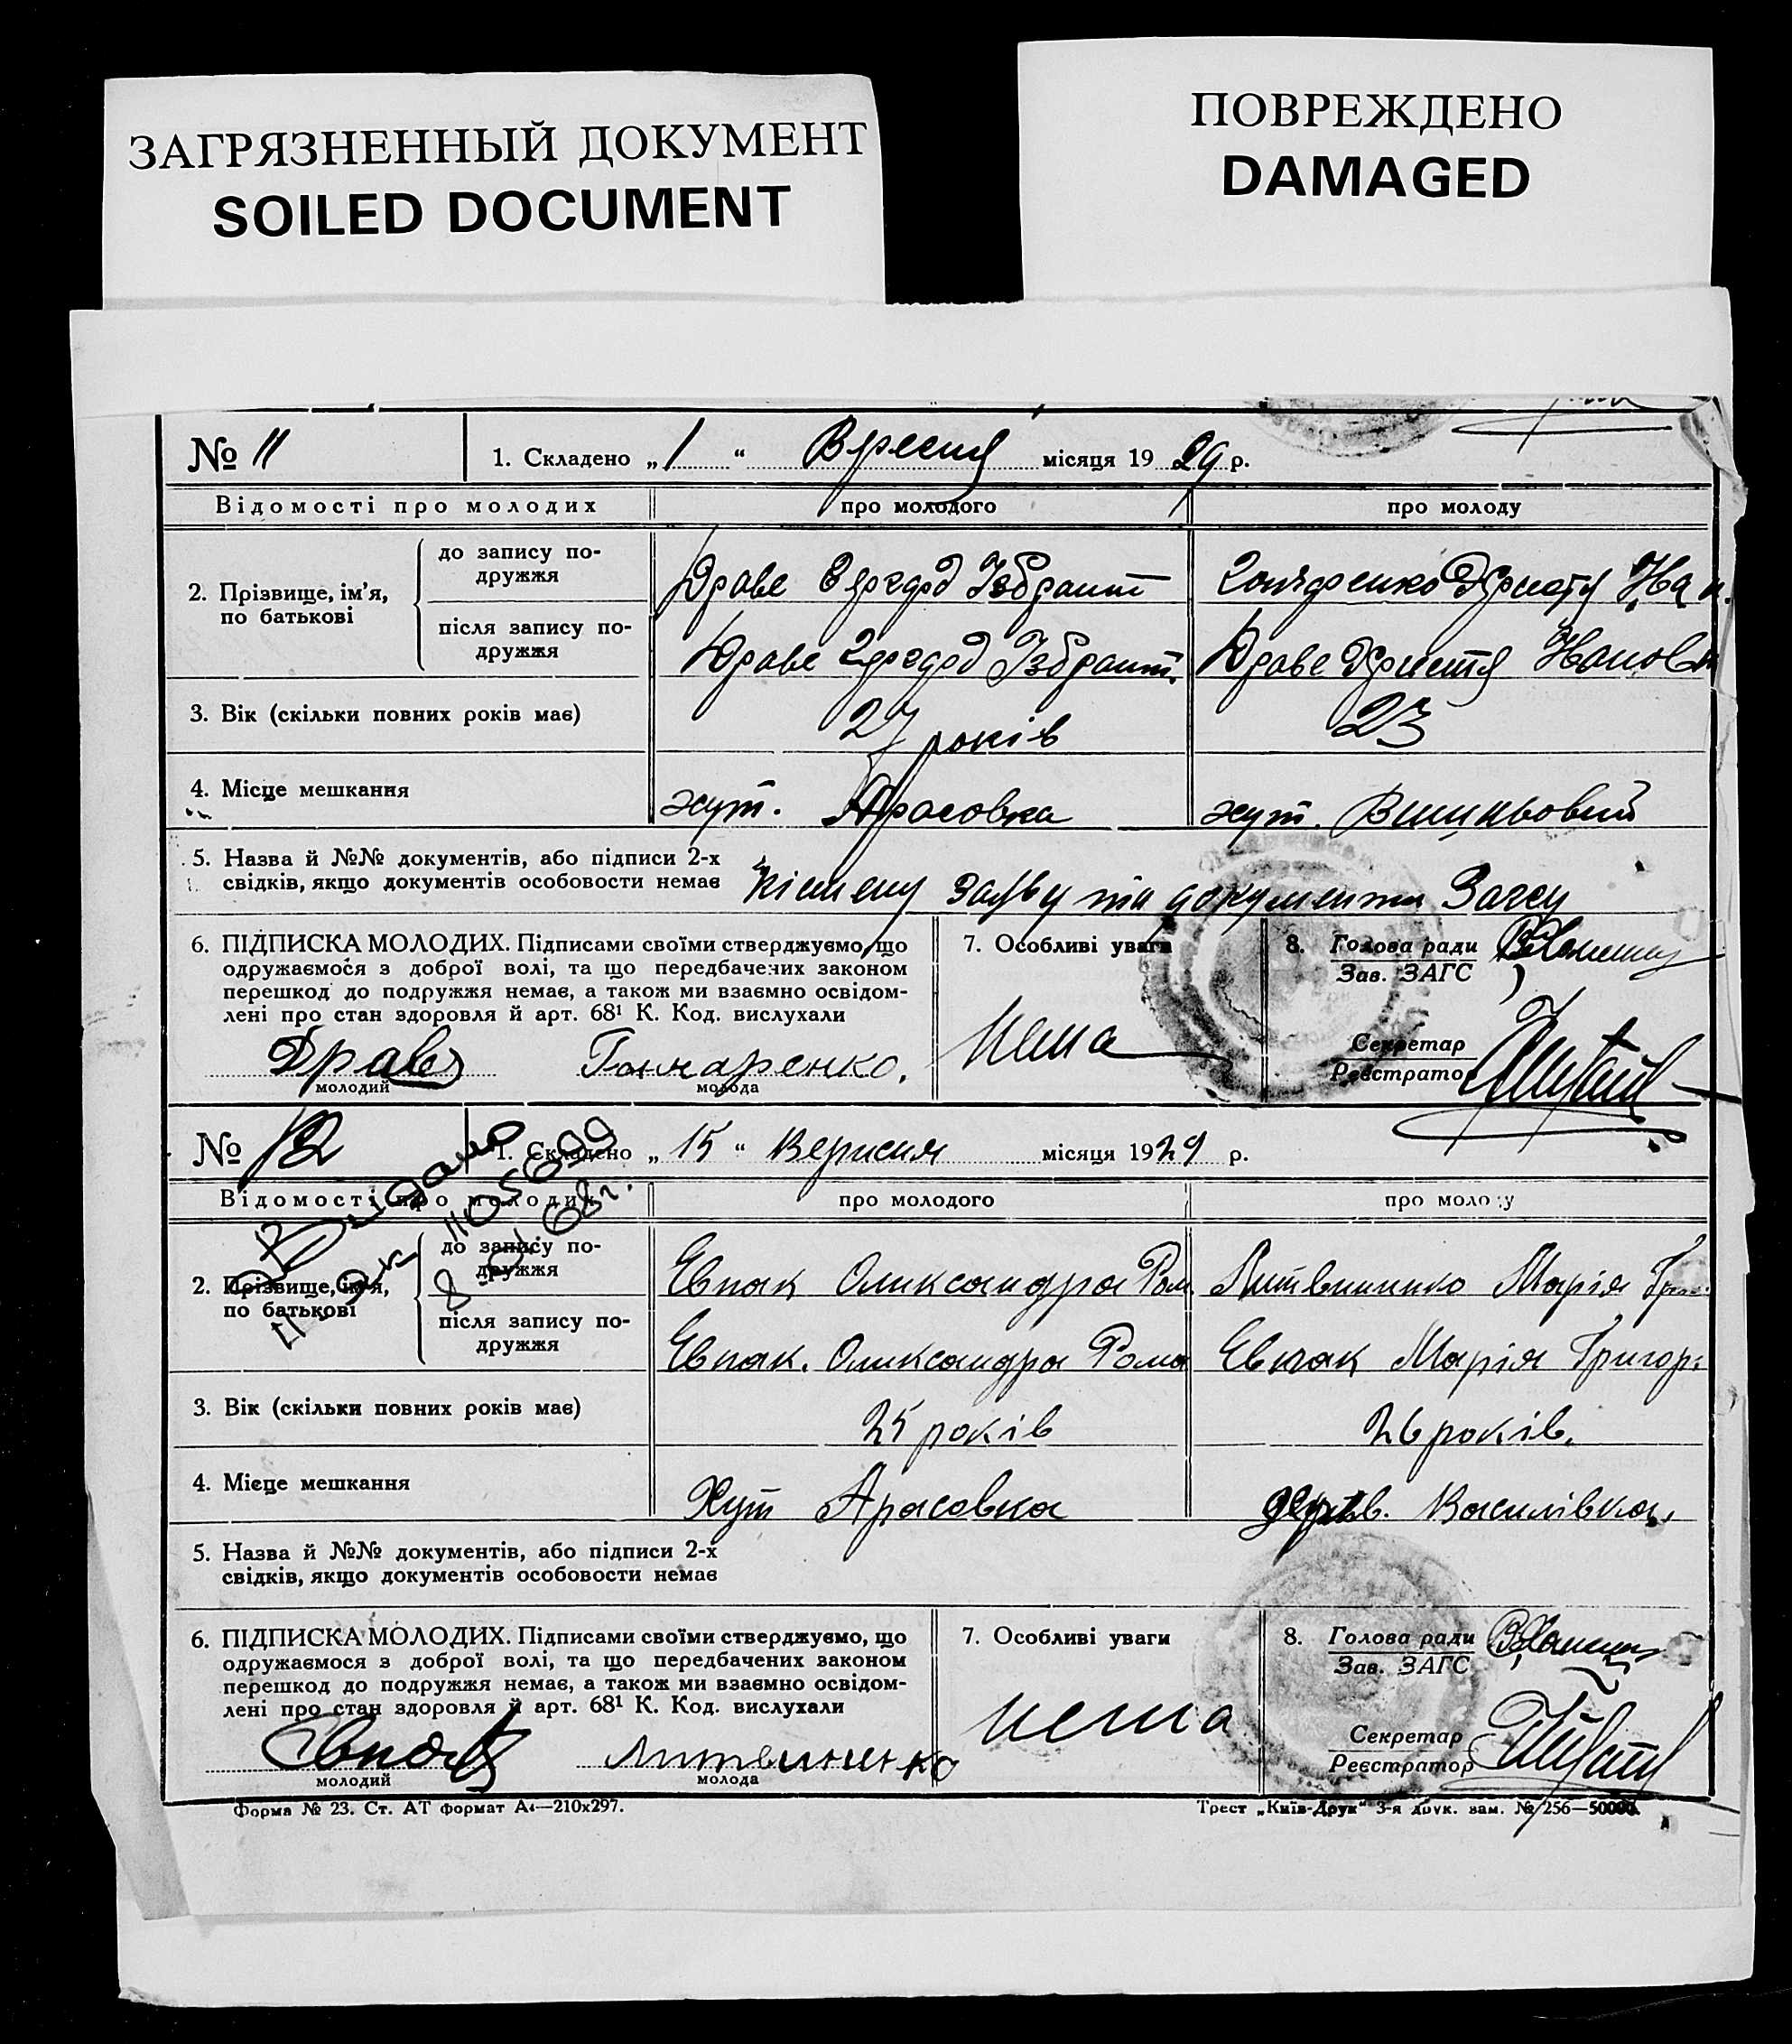 ЗАГРЯЗНЕННЫЙ ДОКУМЕНТ
SOILED DOCUMENT
ПОВРЕЖДЕНО
DAMAGED
№ 11
1. Складено „ 1 “ Вресня місяця 1929 р.
Відомості про молодих
про молодого
про молоду
2. Прізвище, ім'я,
по батькові
до запису по-
дружжя
Драве
після запису по-
дружжя
Драве
Драве
3. Вік (скільки повних років має)
27 років
23
4. Місце мешкання
хут. Арасовка
хут.
5. Назва й №№ документів, або підписи 2-х
свідків, якщо документів особовости немає
заяву та документи Загсу
6. ПІДПИСКА МОЛОДИХ. Підписами своїми стверджуємо, що
одружаємося з доброї волі, та що передбачених законом
перешкод до подружжя немає, а також ми взаємно освідом-
лені про стан здоровля й арт. 68¹ К. Код. вислухали
Драве Гончаренко.
молодий молода
7. Особливі уваги
нема
8. Голова ради
Зав. ЗАГС
Секретар
Реєстратор
№ 12
1. Складено „ 15 “ Верисня місяця 1929 р.
Видано
1105699
68 г.
Відомості про молодих
про молодого
про молоду
2. Прізвище, ім'я,
по батькові
до запису по-
дружжя
Евпак Оликсандра Ром.
Литвиненко Марія
після запису по-
дружжя
Евпак. Оликсандра Рома
Евпак Марія Григор.
3. Вік (скільки повних років має)
25 років
26 років.
4. Місце мешкання
Хут Арасовка
Василівка.
5. Назва й №№ документів, або підписи 2-х
свідків, якщо документів особовости немає
6. ПІДПИСКА МОЛОДИХ. Підписами своїми стверджуємо, що
одружаємося з доброї волі, та що передбачених законом
перешкод до подружжя немає, а також ми взаємно освідом-
лені про стан здоровля й арт. 68¹ К. Код. вислухали
Евпак Литвиненко
молодий молода
7. Особливі уваги
нема
8. Голова ради
Зав. ЗАГС
Секретар
Реєстратор
Форма № 23. Ст. АТ формат А4—210х297.
Трест „Київ-Друк“ 3-я друк. зам. № 256—50000.